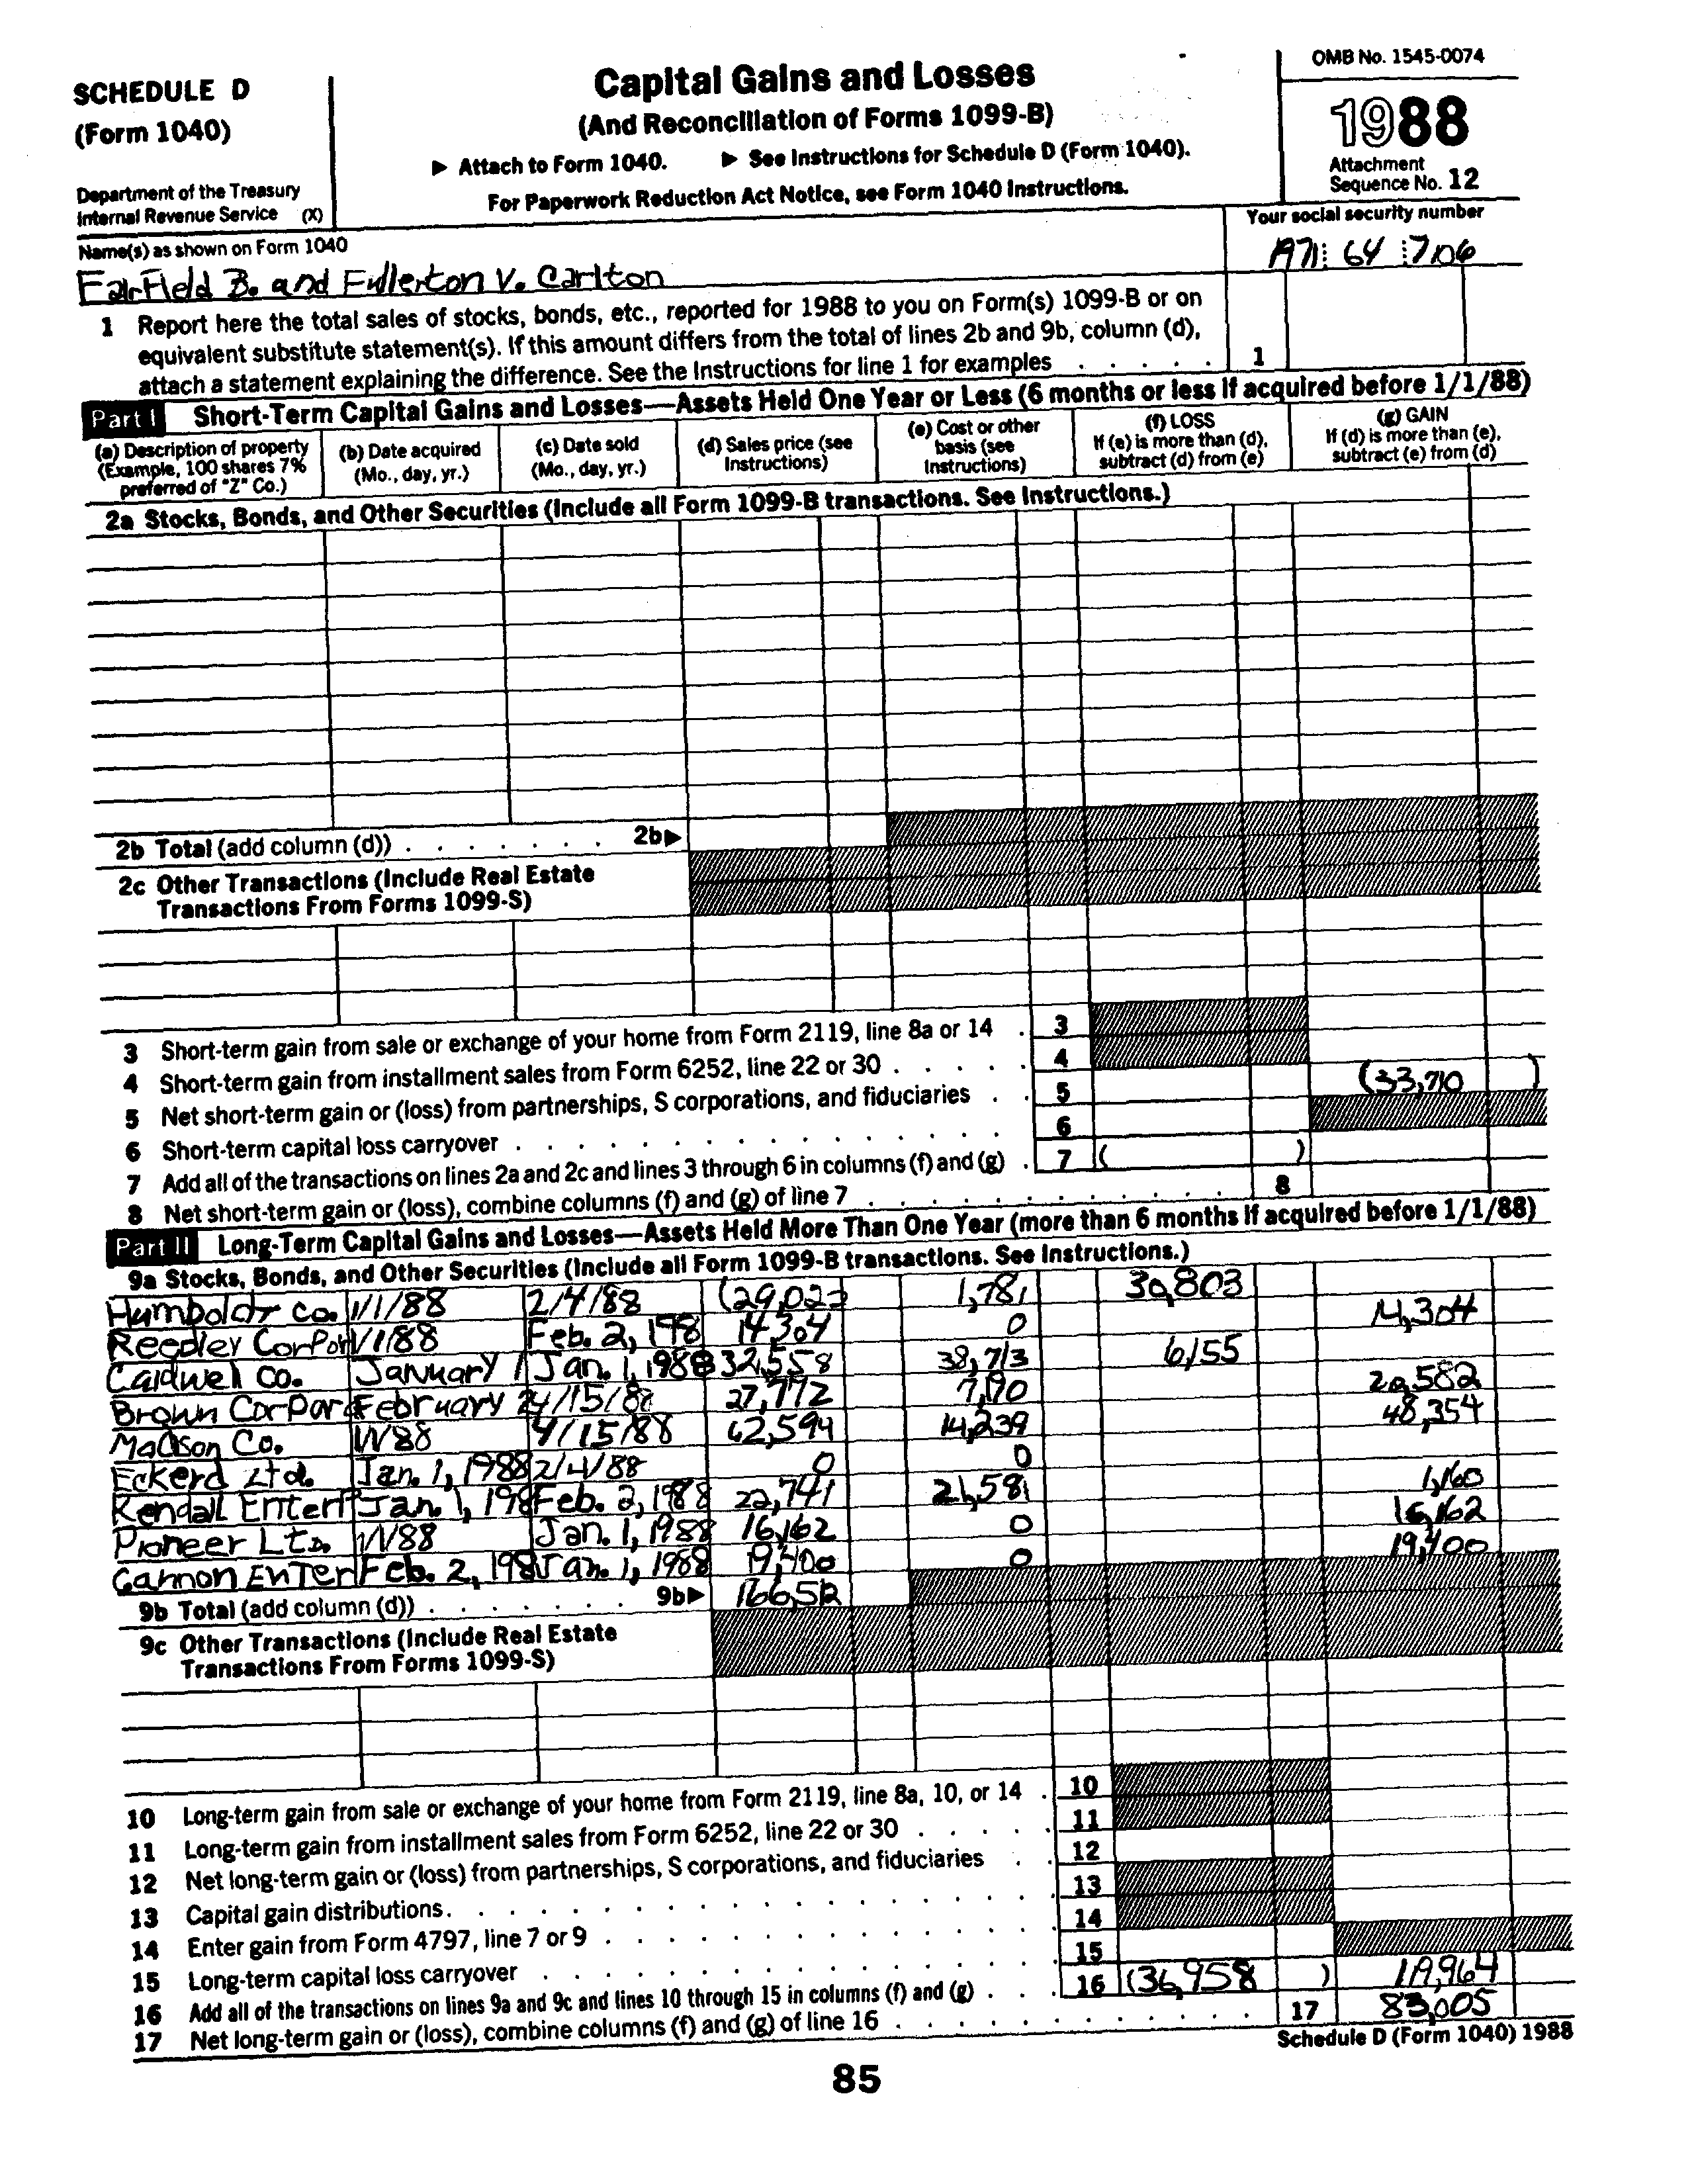 SCHEDULE D
(Form 1040)
Department of the Treasury
Internal Revenue Service (X)
Capital Gains and Losses
(And Reconciliation of Forms 1099-B)
▶ Attach to Form 1040. ▶ See Instructions for Schedule D (Form 1040).
For Paperwork Reduction Act Notice, see Form 1040 Instructions.
OMB No. 1545-0074
1988
Attachment
Sequence No. 12
Name(s) as shown on Form 1040
Fairfield B. and Fullerton V. Carlton
Your social security number
971 64 7106
1 Report here the total sales of stocks, bonds, etc., reported for 1988 to you on Form(s) 1099-B or on
equivalent substitute statement(s). If this amount differs from the total of lines 2b and 9b, column (d),
attach a statement explaining the difference. See the Instructions for line 1 for examples . . . . . 1
Part I Short-Term Capital Gains and Losses—Assets Held One Year or Less (6 months or less if acquired before 1/1/88)
(a) Description of property
(Example, 100 shares 7%
preferred of "Z" Co.)
(b) Date acquired
(Mo., day, yr.)
(c) Date sold
(Mo., day, yr.)
(d) Sales price (see
Instructions)
(e) Cost or other
basis (see
Instructions)
(f) LOSS
If (e) is more than (d),
subtract (d) from (e)
(g) GAIN
If (d) is more than (e),
subtract (e) from (d)
2a Stocks, Bonds, and Other Securities (Include all Form 1099-B transactions. See Instructions.)
2b Total (add column (d)) . . . . . . . 2b▶
2c Other Transactions (Include Real Estate
Transactions From Forms 1099-S)
3 Short-term gain from sale or exchange of your home from Form 2119, line 8a or 14 . 3
4 Short-term gain from installment sales from Form 6252, line 22 or 30 . . . . . 4
5 Net short-term gain or (loss) from partnerships, S corporations, and fiduciaries . . 5 (33,710 )
6 Short-term capital loss carryover . . . . . . . . . . . . . 6
7 Add all of the transactions on lines 2a and 2c and lines 3 through 6 in columns (f) and (g) . 7 ( )
8 Net short-term gain or (loss), combine columns (f) and (g) of line 7 . . . . . . . . . . . . 8
Part II Long-Term Capital Gains and Losses—Assets Held More Than One Year (more than 6 months if acquired before 1/1/88)
9a Stocks, Bonds, and Other Securities (Include all Form 1099-B transactions. See Instructions.)
Humboldt Co. 1/1/88 2/4/88 (29,022 1,781 30,803
Reedley Corpor 1/1/88 Feb. 2, 198 14,304 0 14,304
Caldwel Co. January 1 Jan. 1, 1988 32,558 38,713 6,155
Brown Corpora February 2 4/15/88 27,772 7,190 20,582
Madison Co. 1/1/88 4/15/88 62,594 14,239 48,354
Eckerd Ltd. Jan. 1, 1988 2/4/88 0 0
Kendall Enterp Jan. 1, 198 Feb. 2, 1988 22,741 21,581 1,160
Pioneer Ltd. 1/1/88 Jan. 1, 1988 16,162 0 16,162
Gannon Enter Feb. 2, 198 Jan. 1, 1988 19,400 0 19,400
9b Total (add column (d)) . . . . . . . 9b▶ 166,512
9c Other Transactions (Include Real Estate
Transactions From Forms 1099-S)
10 Long-term gain from sale or exchange of your home from Form 2119, line 8a, 10, or 14 . 10
11 Long-term gain from installment sales from Form 6252, line 22 or 30 . . . . . 11
12 Net long-term gain or (loss) from partnerships, S corporations, and fiduciaries . . 12
13 Capital gain distributions . . . . . . . . . . . . . . . 13
14 Enter gain from Form 4797, line 7 or 9 . . . . . . . . . . . 14
15 Long-term capital loss carryover . . . . . . . . . . . . . 15
16 Add all of the transactions on lines 9a and 9c and lines 10 through 15 in columns (f) and (g) . . . 16 (36,958 ) 119,964
17 Net long-term gain or (loss), combine columns (f) and (g) of line 16 . . . . . . . . . . . . 17 83,005
Schedule D (Form 1040) 1988
85